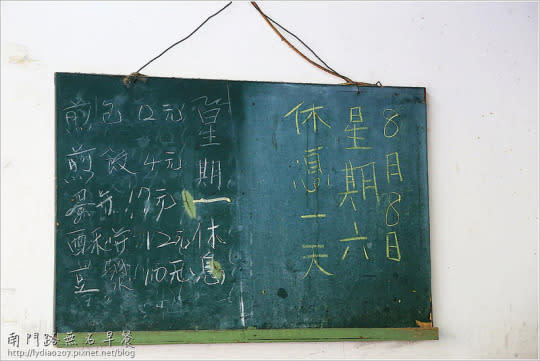 8月8日
星期六
休息一天
星期一休息
煎包 12元
煎餃 4元
蛋餅 17元
酥餅 12元
豆漿 10元
南門路無名早餐
http://lydiao2oy.pixnet.net/blog